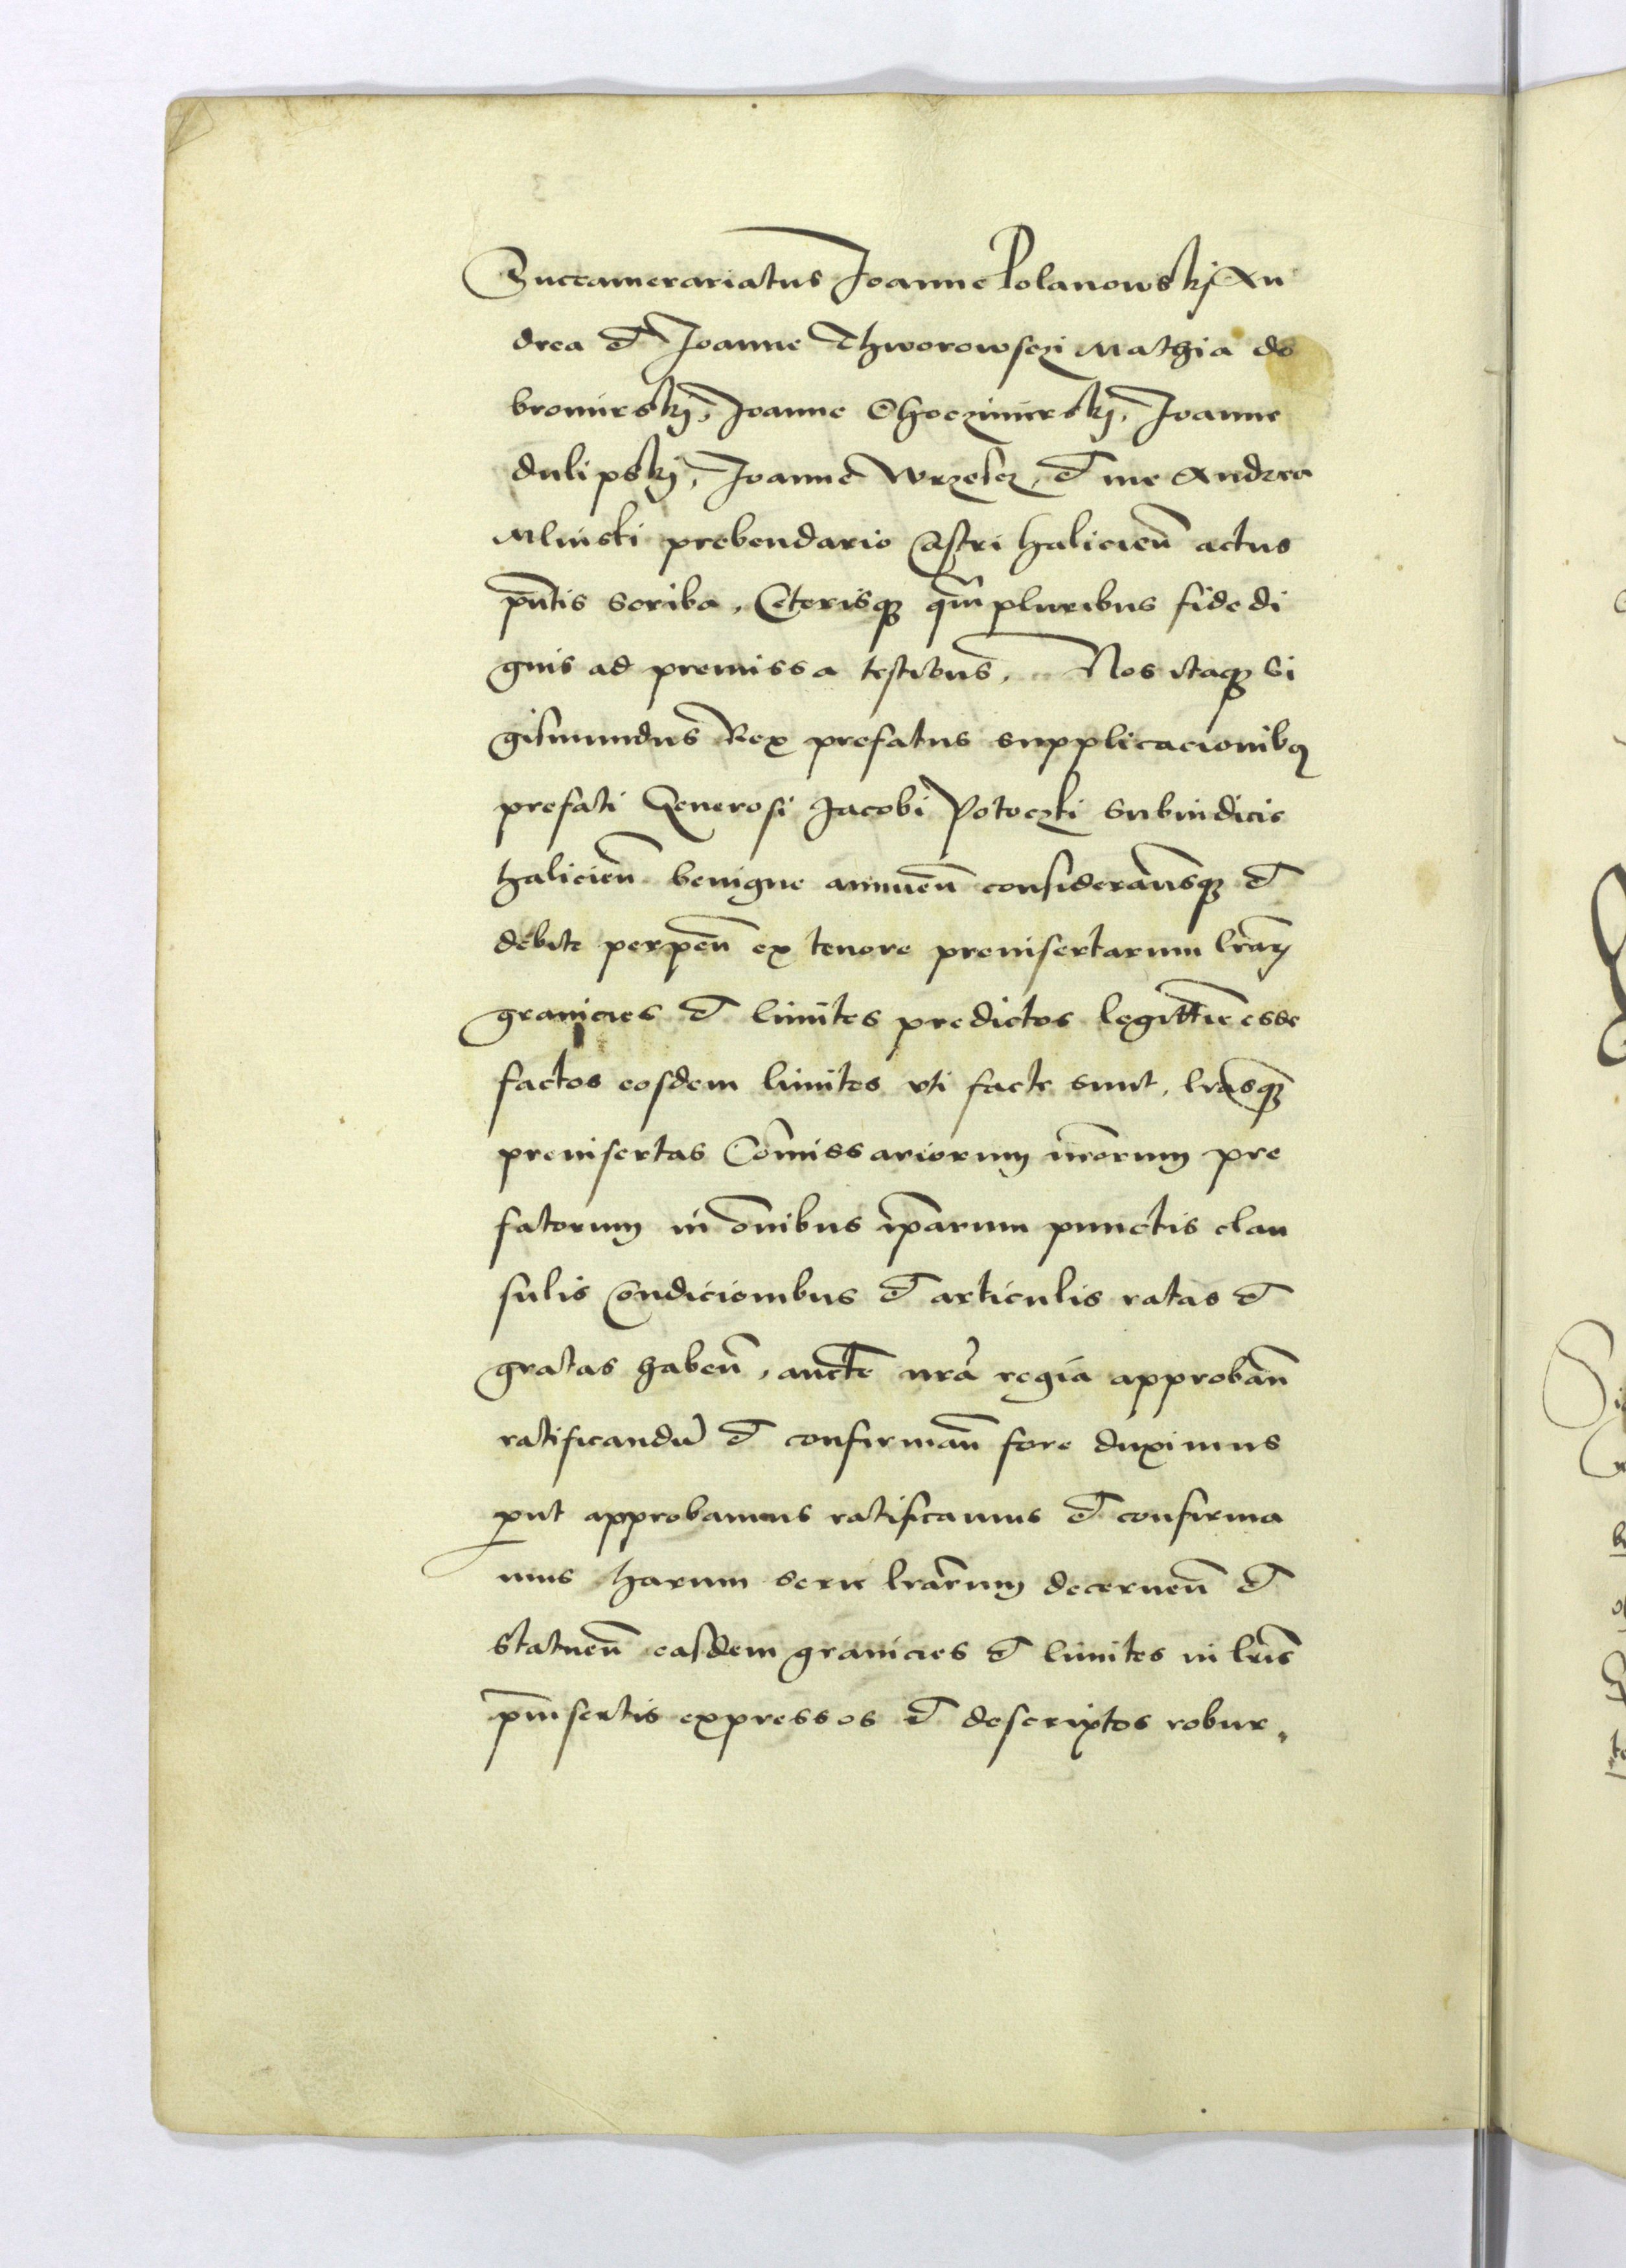 Succamerariatus Joanne Polanowskj An
drea et Joanne Thworowsczi Mathia do
bromirskj, Joanne Choczimirskj, Joanne
dulipskj, Joanne Wrzesz, et me Andrea
Mlinski prebendario Castri haliciẽn actus
pñtis scriba, Ceterisq3 q̃m pluribus fidedi
gnis ad premissa testibus, Nos itaq3 Si
gismundus Rex prefatus supplicacionibq
prefati Generosi Jacobi Potoczki Subiudicis
haliciẽn benigne annuẽn consideransq3 et
debite perpẽn ex tenore preinsertarum lrãrum
granicies et limites predictos legitt̃ie esse
factos eosdem limites uti facte sunt, lrãsq3
preinsertas Com̃issariorum nr̃orum pre
fatorum in om̃ibus ip̃arum punctis clau
sulis Condicionibus et articulis ratas et
gratas habeñ, auctẽ nr̃a regia approbañ
ratificandũ et confirmañ fore duximus
put approbamus ratificamus et confirma
mus harum serie lr̃arum decerneñ et
statueñ easdem granicies et limites in lr̃is
p̃insertis expressos et descriptos robur,